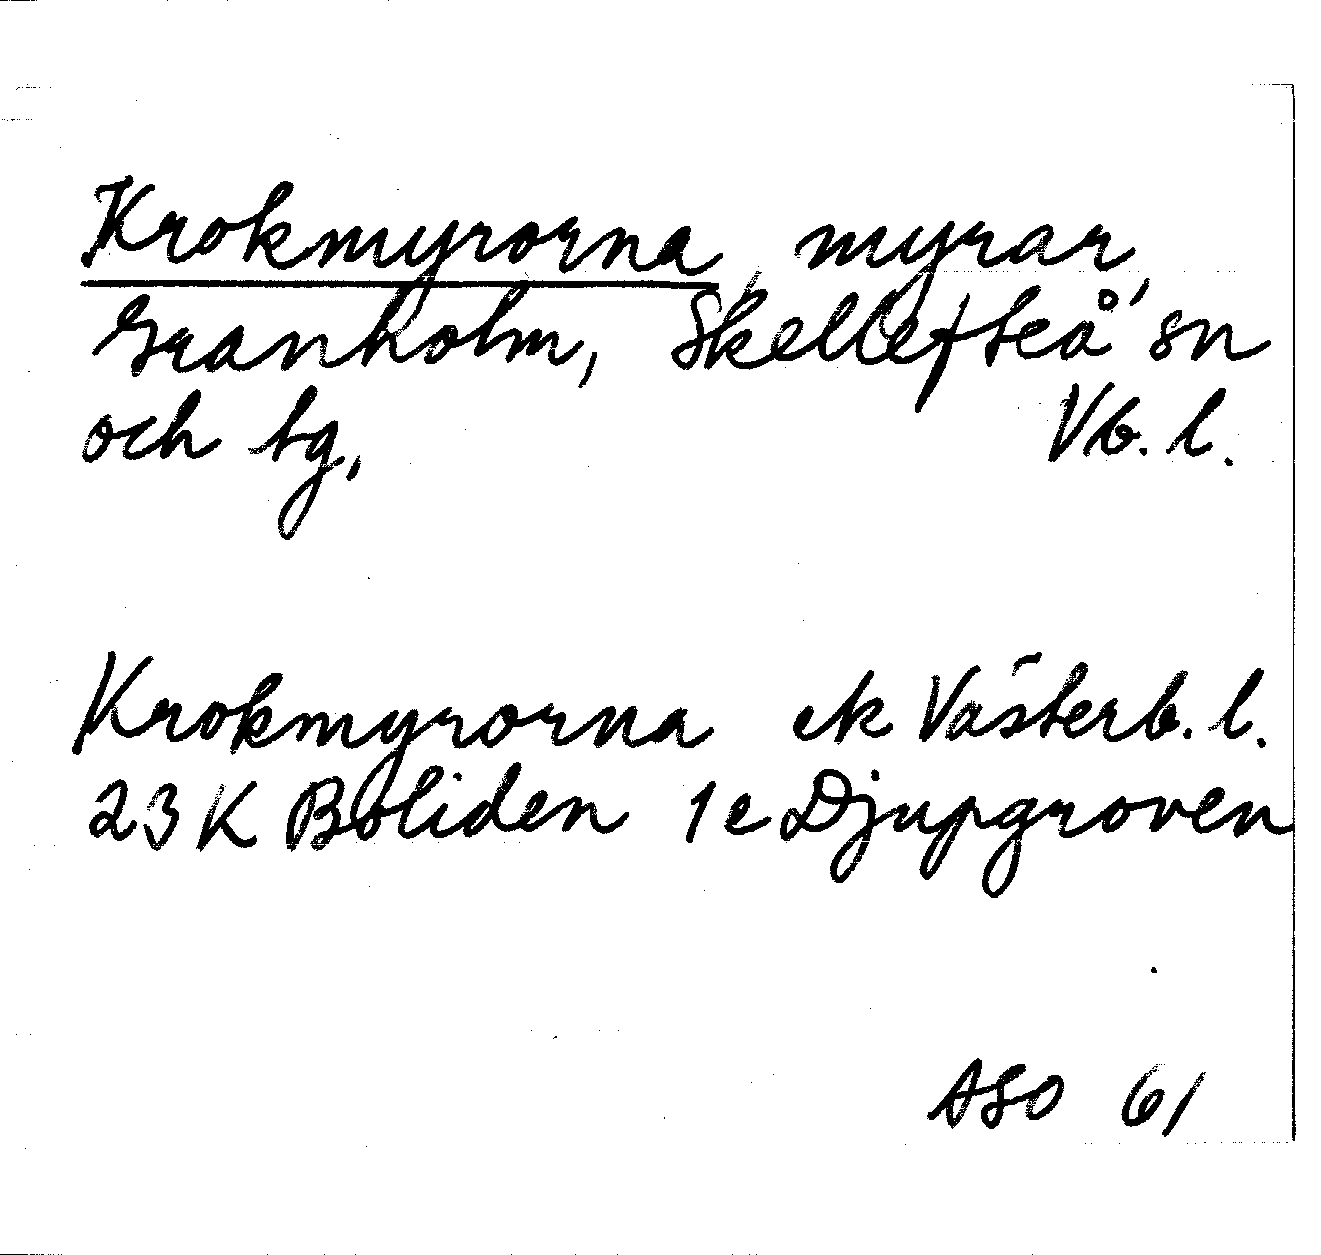 Krokmyrorna, myrar,
Granholm, Skellefteå sn
och tg, Vb. l.
Krokmyrorna ek Västerb. l.
23 K Boliden 1e Djupgroven
ASO 61